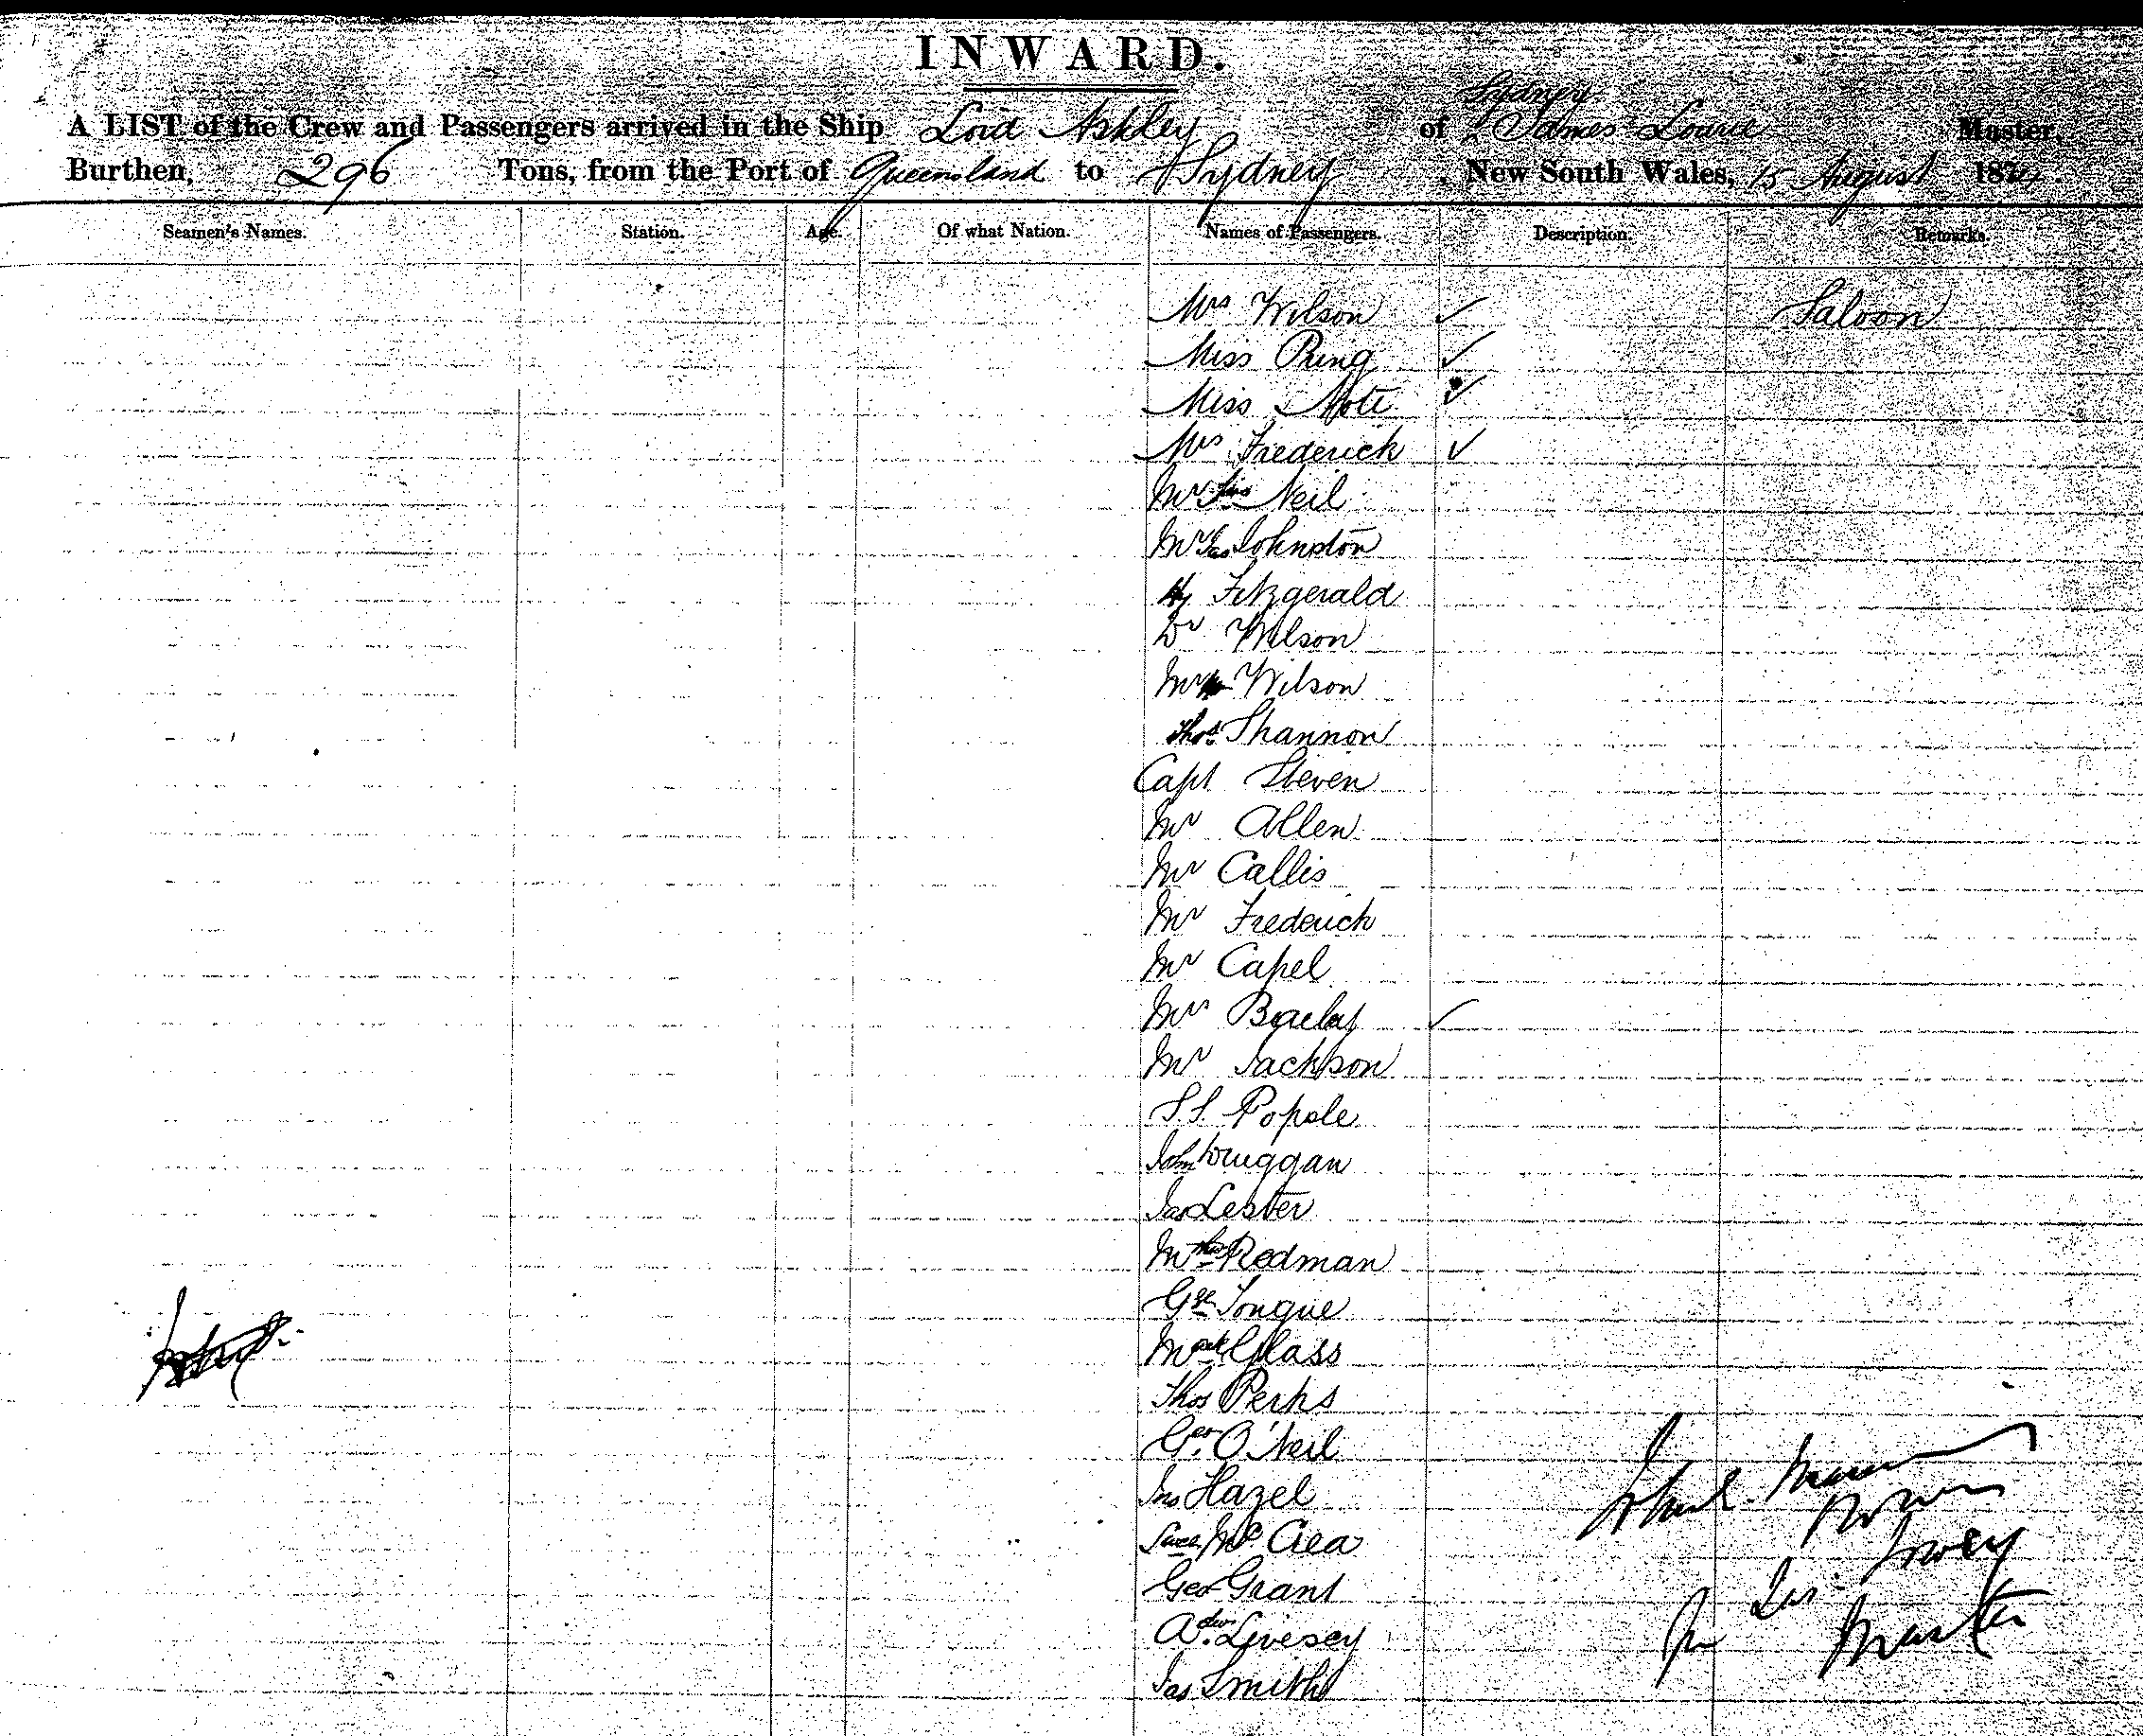 INWARD.
Sydney
A LIST of the Crew and Passengers arrived in the Ship Lord Ashley of James Lowrie Master,
Burthen, 296 Tons, from the Port of Queensland to Sydney, New South Wales, 15 August 187
Seamen's Names. Station. Age. Of what Nation. Names of Passengers. Description. Remarks.
Mrs Wilson ✓ Saloon
Miss Pring ✓
Miss Mote ✓
Mrs Frederick ✓
Mr Neil
Mr Jas Johnston
Hy Fitzgerald
Dr Wilson
Mr Wilson
Thos Shannon
Capt Steven
Mr Allen
Mr Callis
Mr Frederick
Mr Capel
Mrs Baclay ✓
Mr Jackson
S.S. Popole
John Druggan
Jas Lester
Mthw Redman
Gge Tongue
Glass
Thos Perks
Geo. O'Neil
Jno Hazel
McCrea
Geo Grant
Adw. Livesey
Jas Smith
Master